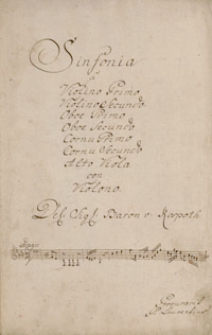 Sinfonia
a
Violino Primo
Violino Secundo
Oboe Primo
Oboe Secundo
Cornu Primo
Cornu Secundo
Alto Viola
con
Violono.
Del Sigl Baron v.